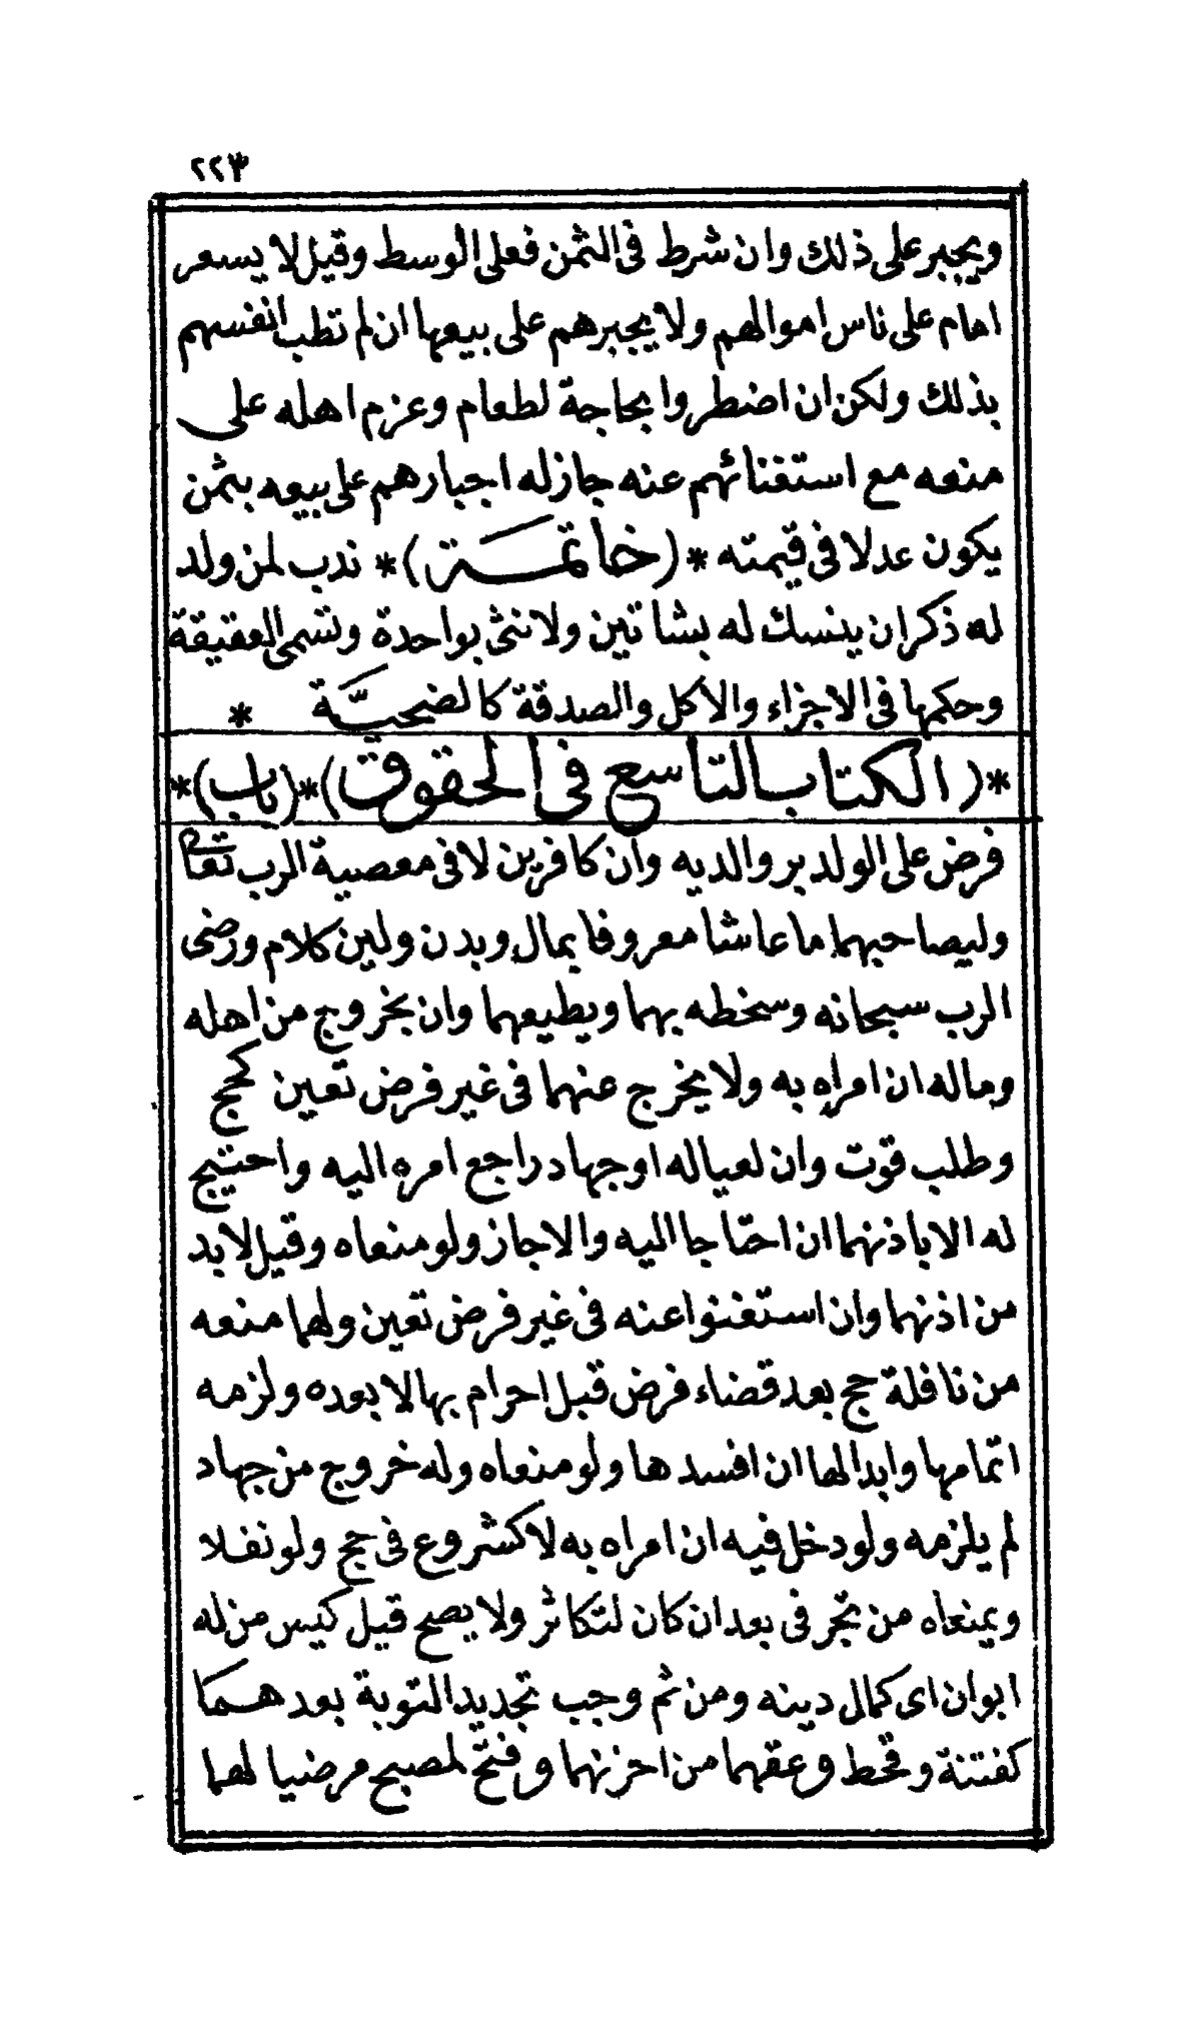 ٢٢٣
ويجبر على ذلك وان شرط فى الثمن فعلى الوسط وقيل لا يسعر
امام على ناس اموالهم ولا يجبرهم على بيعها ان لم تطب انفسهم
بذلك ولكن ان اضطروا بحاجة لطعام وعزم اهله على
منعه مع استغنائهم عنه جاز له اجبارهم على بيعه بثمن
يكون عدلا فى قيمته * (خاتمة) * ندب لمن ولد
له ذكر ان ينسك له بشاتين ولانثى بواحدة وتسمى العقيقة
وحكمها فى الاجزاء والاكل والصدقة كالضحيّة *
* (الكتاب التاسع فى الحقوق) * (باب) *
فرض على الولد بر والديه وان كافرين لا فى معصية الرب تعا
وليصاحبهما ما عاشا معروفا بمال وبدن ولين كلام ورضى
الرب سبحانه وسخطه بهما ويطيعهما وان بخروج من اهله
وماله ان امراه به ولا يخرج عنهما فى غير فرض تعين كحج
وطلب قوت وان لعياله او جهاد راجع امره اليه واحتيج
له الا باذنهما ان احتاجا اليه والا جاز ولو منعاه وقيل لا بد
من اذنهما وان استغنوا عنه فى غير فرض تعين ولهما منعه
من نافلة حج بعد قضاء فرض قبل احرام بها لا بعده ولزمه
اتمامها وابدالها ان افسدها ولو منعاه وله خروج من جهاد
لم يلزمه ولو دخل فيه ان امراه به لا كشروع فى حج ولو نفلا
ويمنعاه من تجر فى بعد ان كان لتكاثر ولا يصح قيل كيس من له
ابوان اى كمال دينه ومن ثم وجب تجديد التوبة بعد هما
كفتنة وقحط وعقهما من احزنهما وفتح لمصبح مرضيا لهما